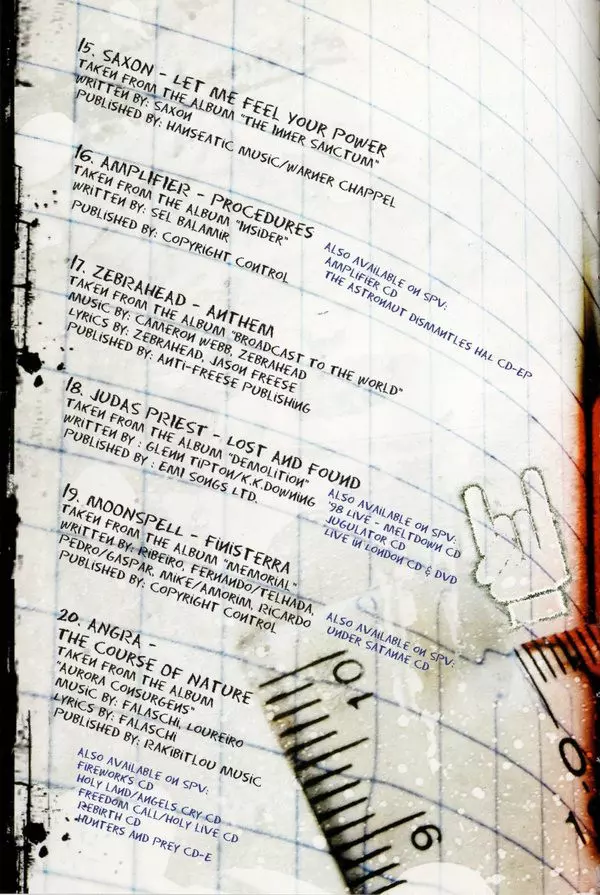 15. SAXON - LET ME FEEL YOUR POWER
TAKEN FROM THE ALBUM "THE INNER SANCTUM"
WRITTEN BY: SAXON
PUBLISHED BY: HANSEATIC MUSIC/WARNER CHAPPEL
16. AMPLIFIER - PROCEDURES
TAKEN FROM THE ALBUM "INSIDER"
WRITTEN BY: SEL BALAMIR
PUBLISHED BY: COPYRIGHT CONTROL
ALSO AVAILABLE ON SPV:
AMPLIFIER CD
THE ASTRONAUT DISMANTLES HAL CD-EP
17. ZEBRAHEAD - ANTHEM
TAKEN FROM THE ALBUM "BROADCAST TO THE WORLD"
MUSIC BY: CAMERON WEBB, ZEBRAHEAD
LYRICS BY: ZEBRAHEAD, JASON FREESE
PUBLISHED BY: ANTI-FREESE PUBLISHING
18. JUDAS PRIEST - LOST AND FOUND
TAKEN FROM THE ALBUM "DEMOLITION"
WRITTEN BY : GLENN TIPTON/K.K.DOWNING
PUBLISHED BY : EMI SONGS LTD.
ALSO AVAILABLE ON SPV:
'98 LIVE - MELTDOWN CD
JUGULATOR CD
LIVE IN LONDON CD & DVD
19. MOONSPELL - FINISTERRA
TAKEN FROM THE ALBUM "MEMORIAL"
WRITTEN BY: RIBEIRO, FERNANDO/TELHADA,
PEDRO/GASPAR, MIKE/AMORIM, RICARDO
PUBLISHED BY: COPYRIGHT CONTROL
ALSO AVAILABLE ON SPV:
UNDER SATANAE CD
20. ANGRA -
THE COURSE OF NATURE
TAKEN FROM THE ALBUM
"AURORA CONSURGENS"
MUSIC BY: FALASCHI, LOUREIRO
LYRICS BY: FALASCHI
PUBLISHED BY: RAKIBITLOU MUSIC
ALSO AVAILABLE ON SPV:
FIREWORKS CD
HOLY LAND/ANGELS CRY CD
FREEDOM CALL/HOLY LIVE CD
REBIRTH CD
HUNTERS AND PREY CD-E
10
9
0
1